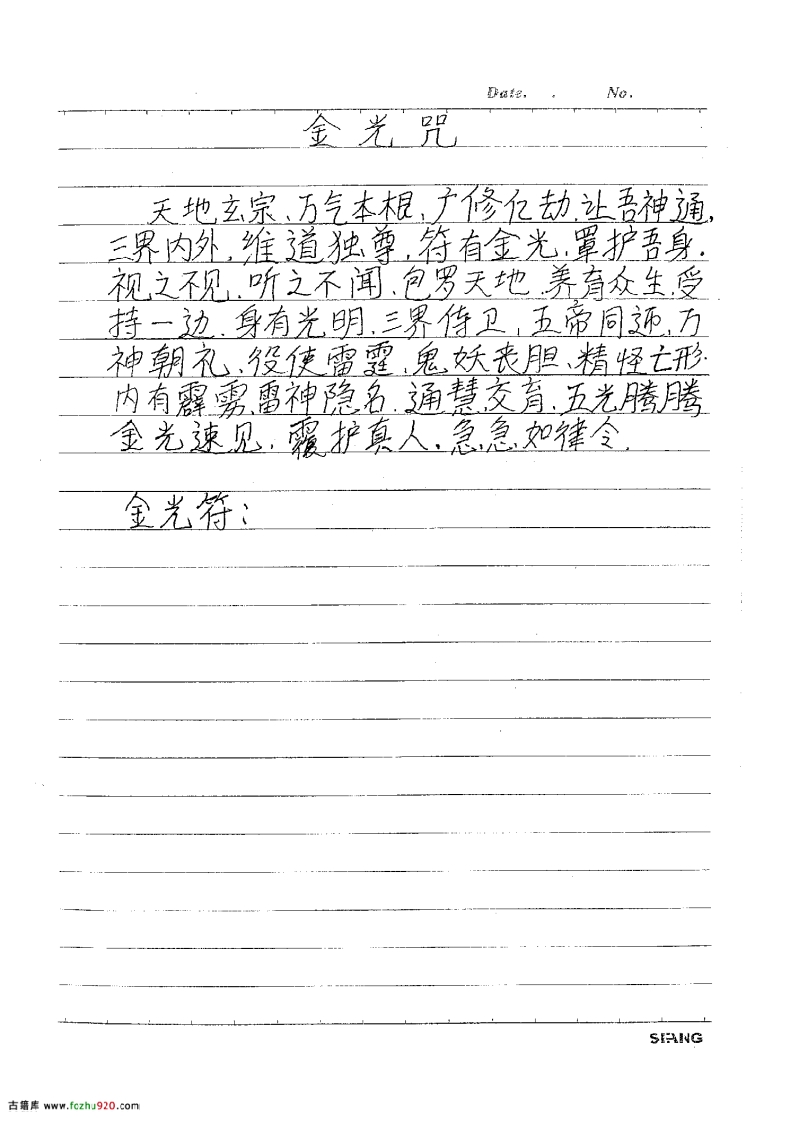 Date. . No.
金光咒
天地玄宗、万气本根、广修亿劫.让吾神通,
三界内外,维道独尊,符有金光,罩护吾身.
视之不见、听之不闻、包罗天地.养育众生.受
持一边.身有光明.三界侍卫,五帝同迊,万
神朝礼、役使雷霆,鬼妖丧胆、精怪亡形.
内有霹雳,雷神隐名.通慧交育.五光腾腾
金光速见,覆护真人.急急如律令.
金光符:
SIANG
古籍库 www.fczhu920.com